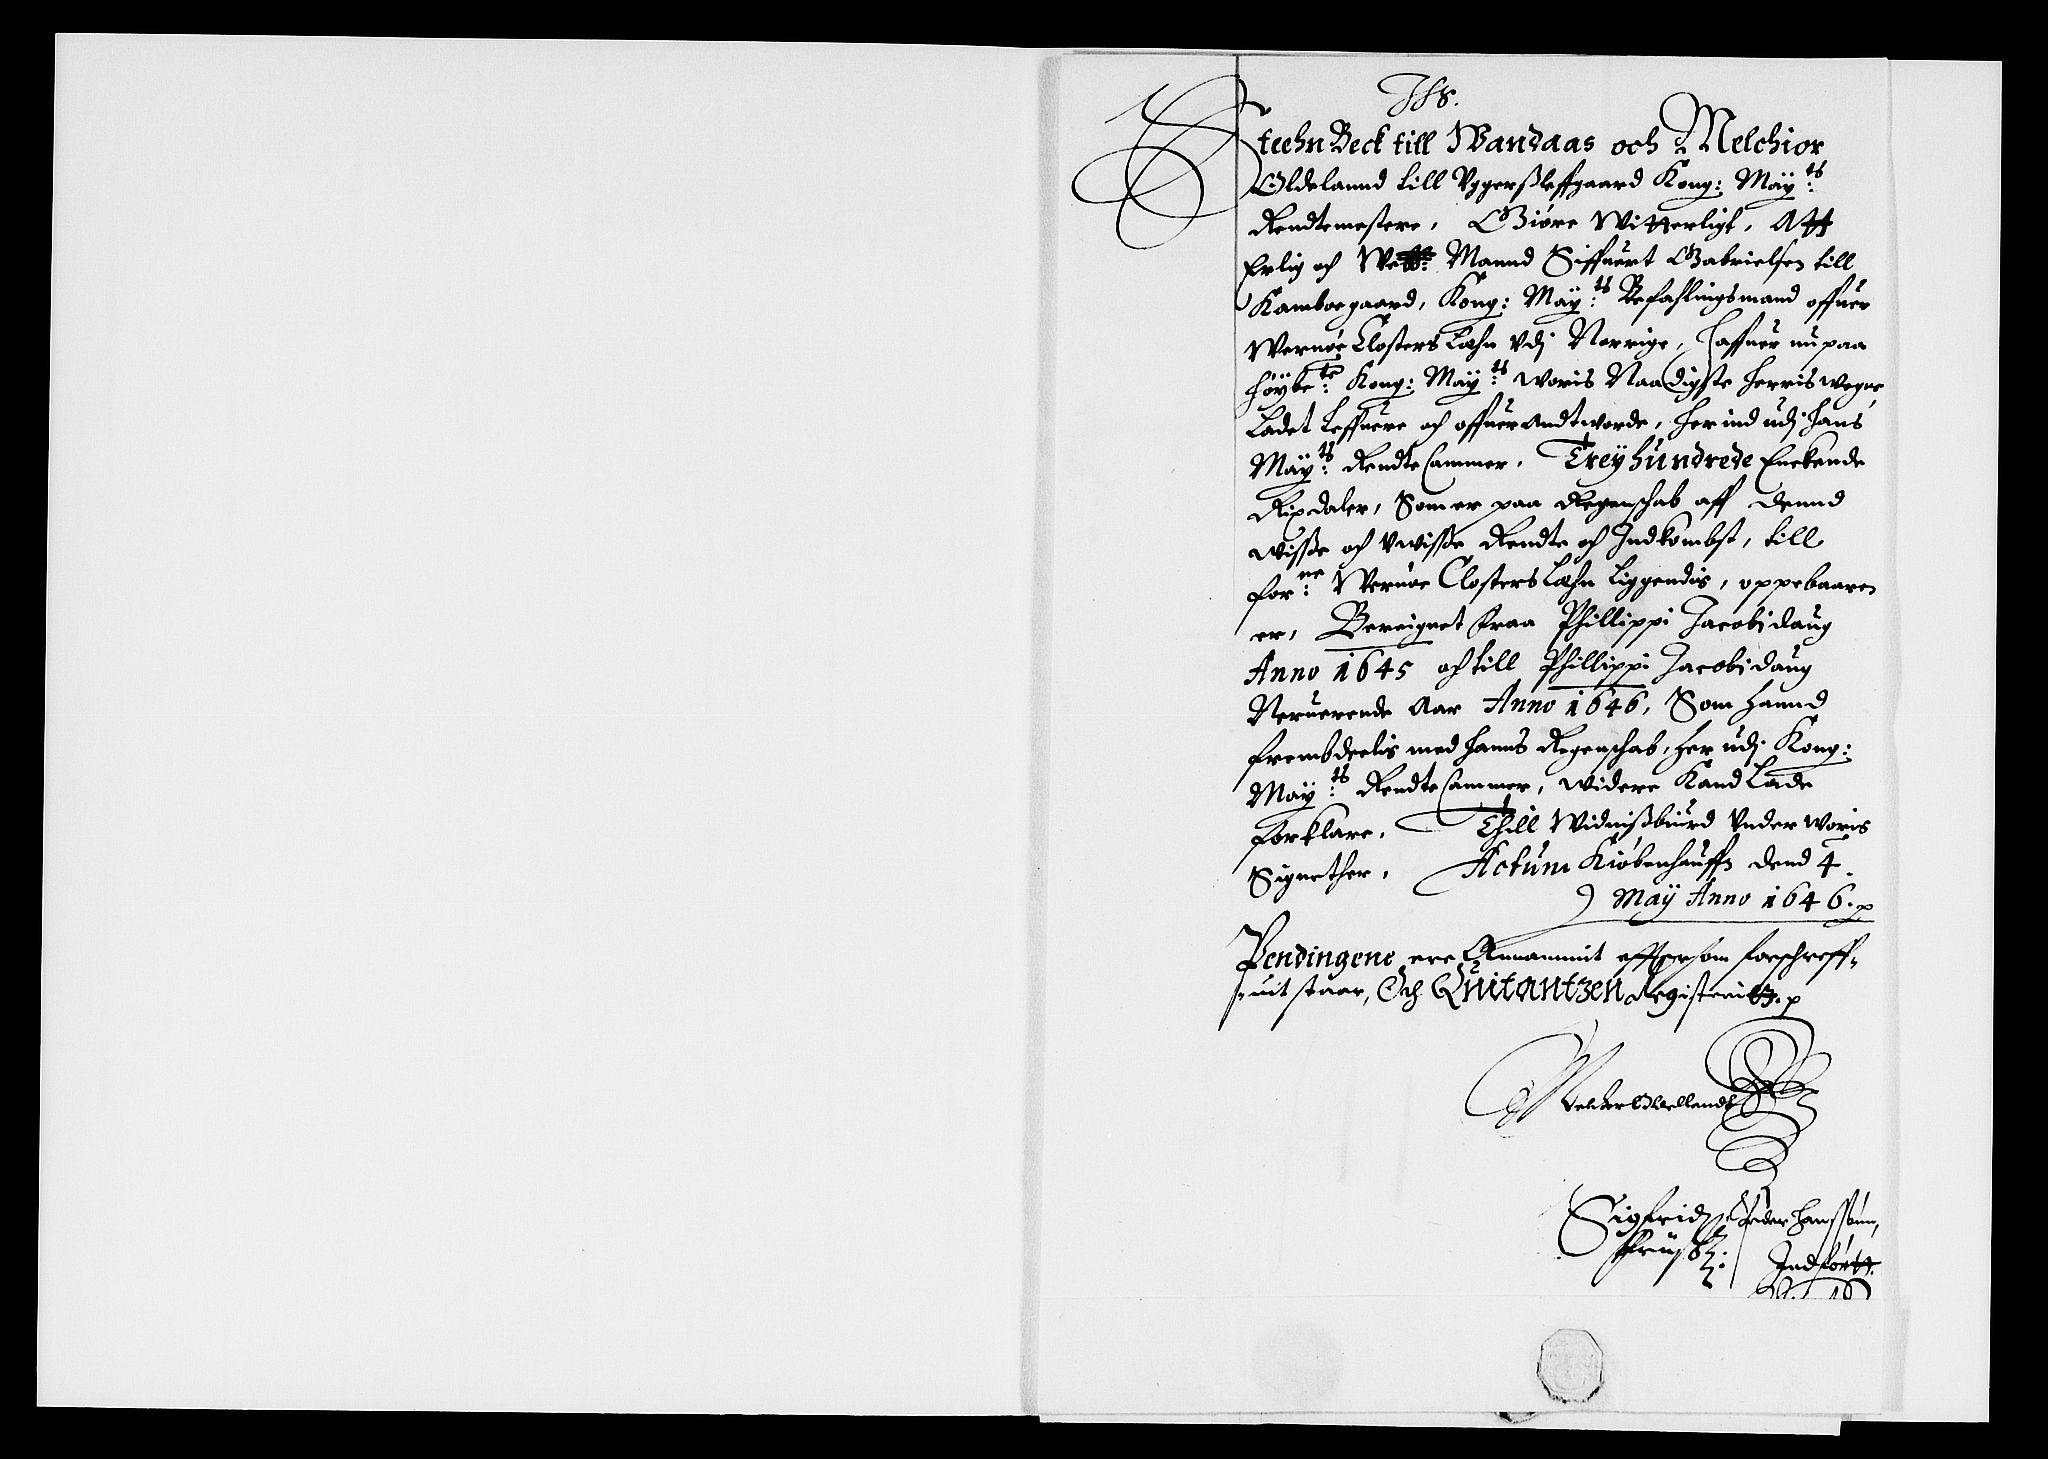 Jhs.
Steehn Beck till Wandaas och Melchior
Oldelannd till Uggerßleffgaard Kong: May:ts
Rendtemestere, Giöre Witterligt, Att
Erlig och Mannd Siffuert Gabrielsen till
Kamboegaard, Kong: May:ts Befahlingsmand offuer
Wernøe Closters Læhn Vdj Norrige, Haffuer nu paa
høybe:te Kong: May:ts woris Naadigste Herris wegne,
Ladet Leffuere och offuerandtworde, her ind udj hans
May:ts Rendte Cammer, Treyhundrede Enckende
Rixdaler, Som er paa Regenschab aff dennd
wisse och Vwisse Rendte och Indkombst, till
for:ne Wernøe Closters Læhn Liggendis, oppebaaren
er, Bereignet fraa Phillippi Jacobi daug
Anno 1645 och till Phillippi Jacobi daug
Neruerende Aar Anno 1646, Som hannd
frembdeelis med hanns Regenschab, her udj Kong:
May:ts Rendte Cammer, widere Kand Lade
forklare, Thill Widnißbiurd Vnder woris
Signether, Actum Kiøbenhauffn dend 4.
May Anno 1646.
Pendingene ere Annammit efftersom forschreff-
-uit staar, Och Quitantzen Registerit
Melcher Olldellandt
Sigfridt Peder Hanssøun,
Indført